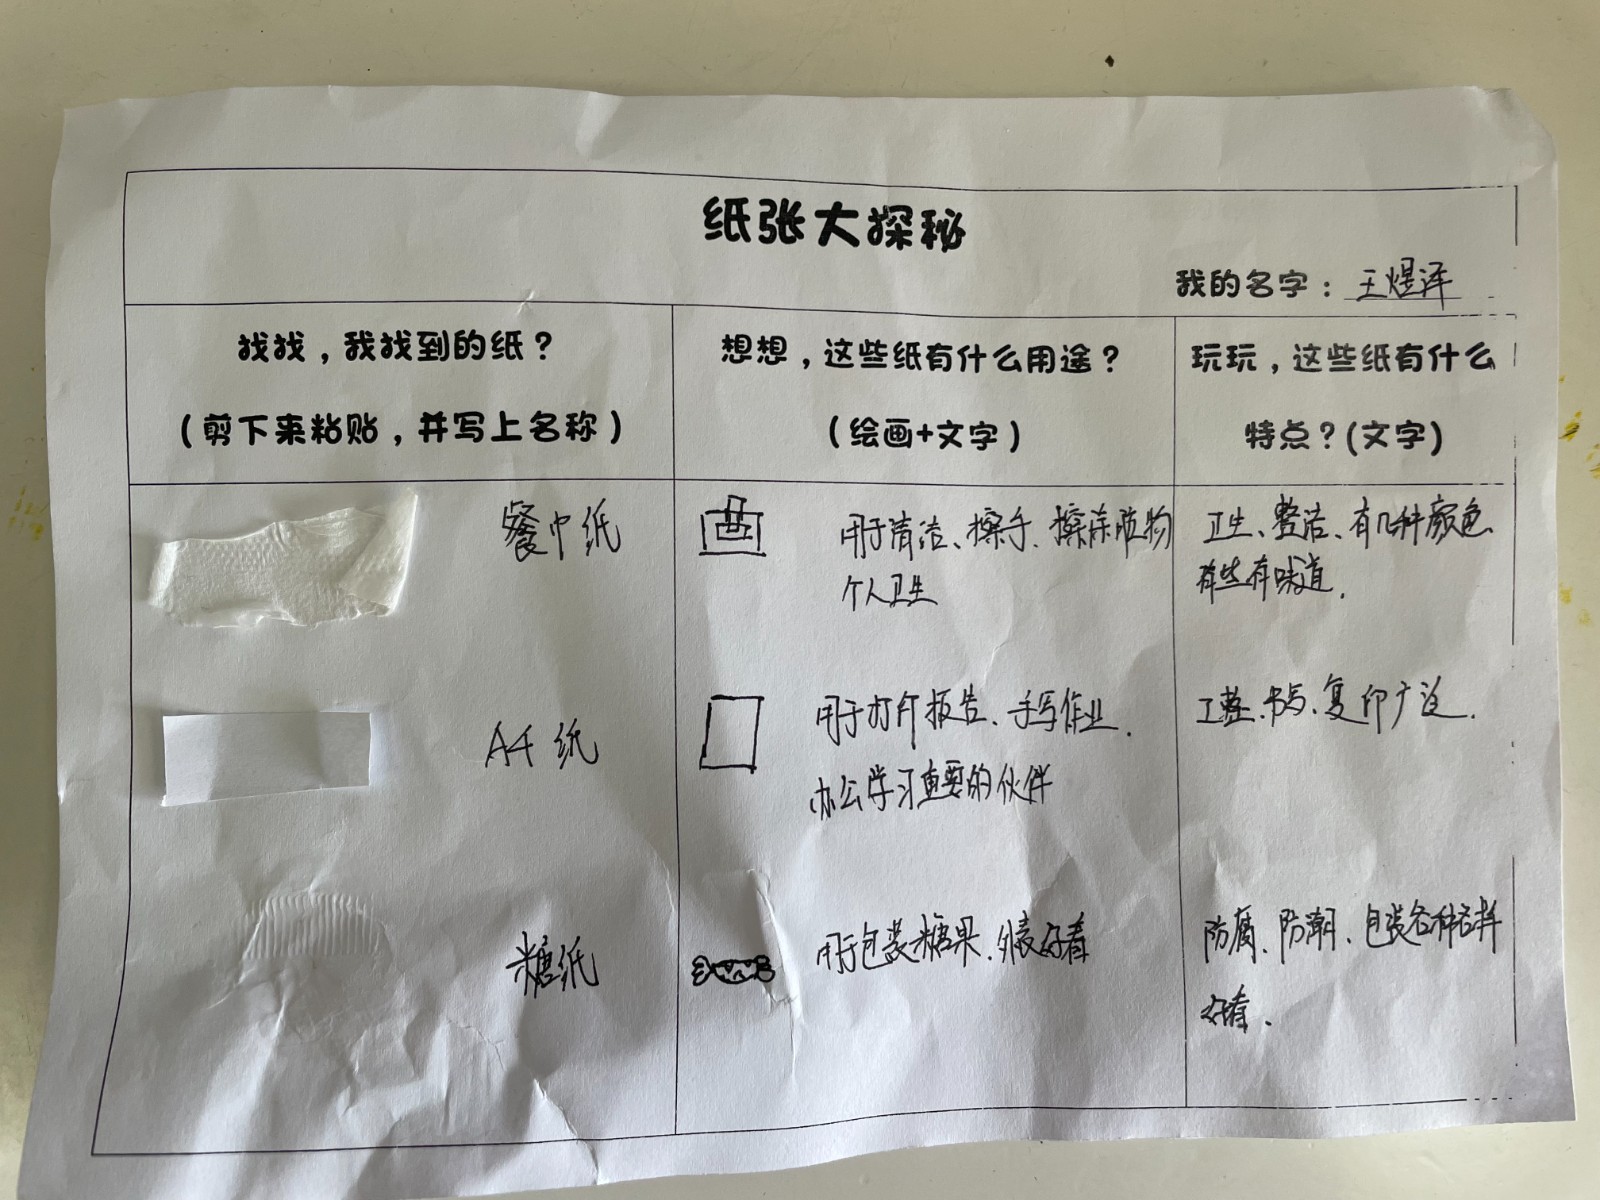 纸张大探秘
我的名字：王煜泽
找找，我找到的纸？
（剪下来粘贴，并写上名称）
想想，这些纸有什么用途？
（绘画+文字）
玩玩，这些纸有什么
特点？(文字)
餐巾纸
用于清洁、擦手、擦除脏物
个人卫生
卫生、整洁、有几种颜色
有些有味道.
A4纸
用于打印报告、手写作业.
办公学习重要的伙伴
工整、书写、复印广泛.
糖纸
用于包装糖果、外表好看
防腐、防潮、包装各种各样
好看.